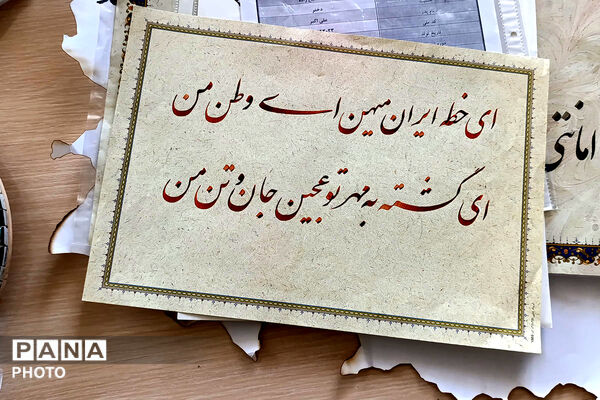 ای خطه ایران میهن ای وطن من
ای گشته به مهر تو عجین جان و تن من
امانتی
PANA
PHOTO